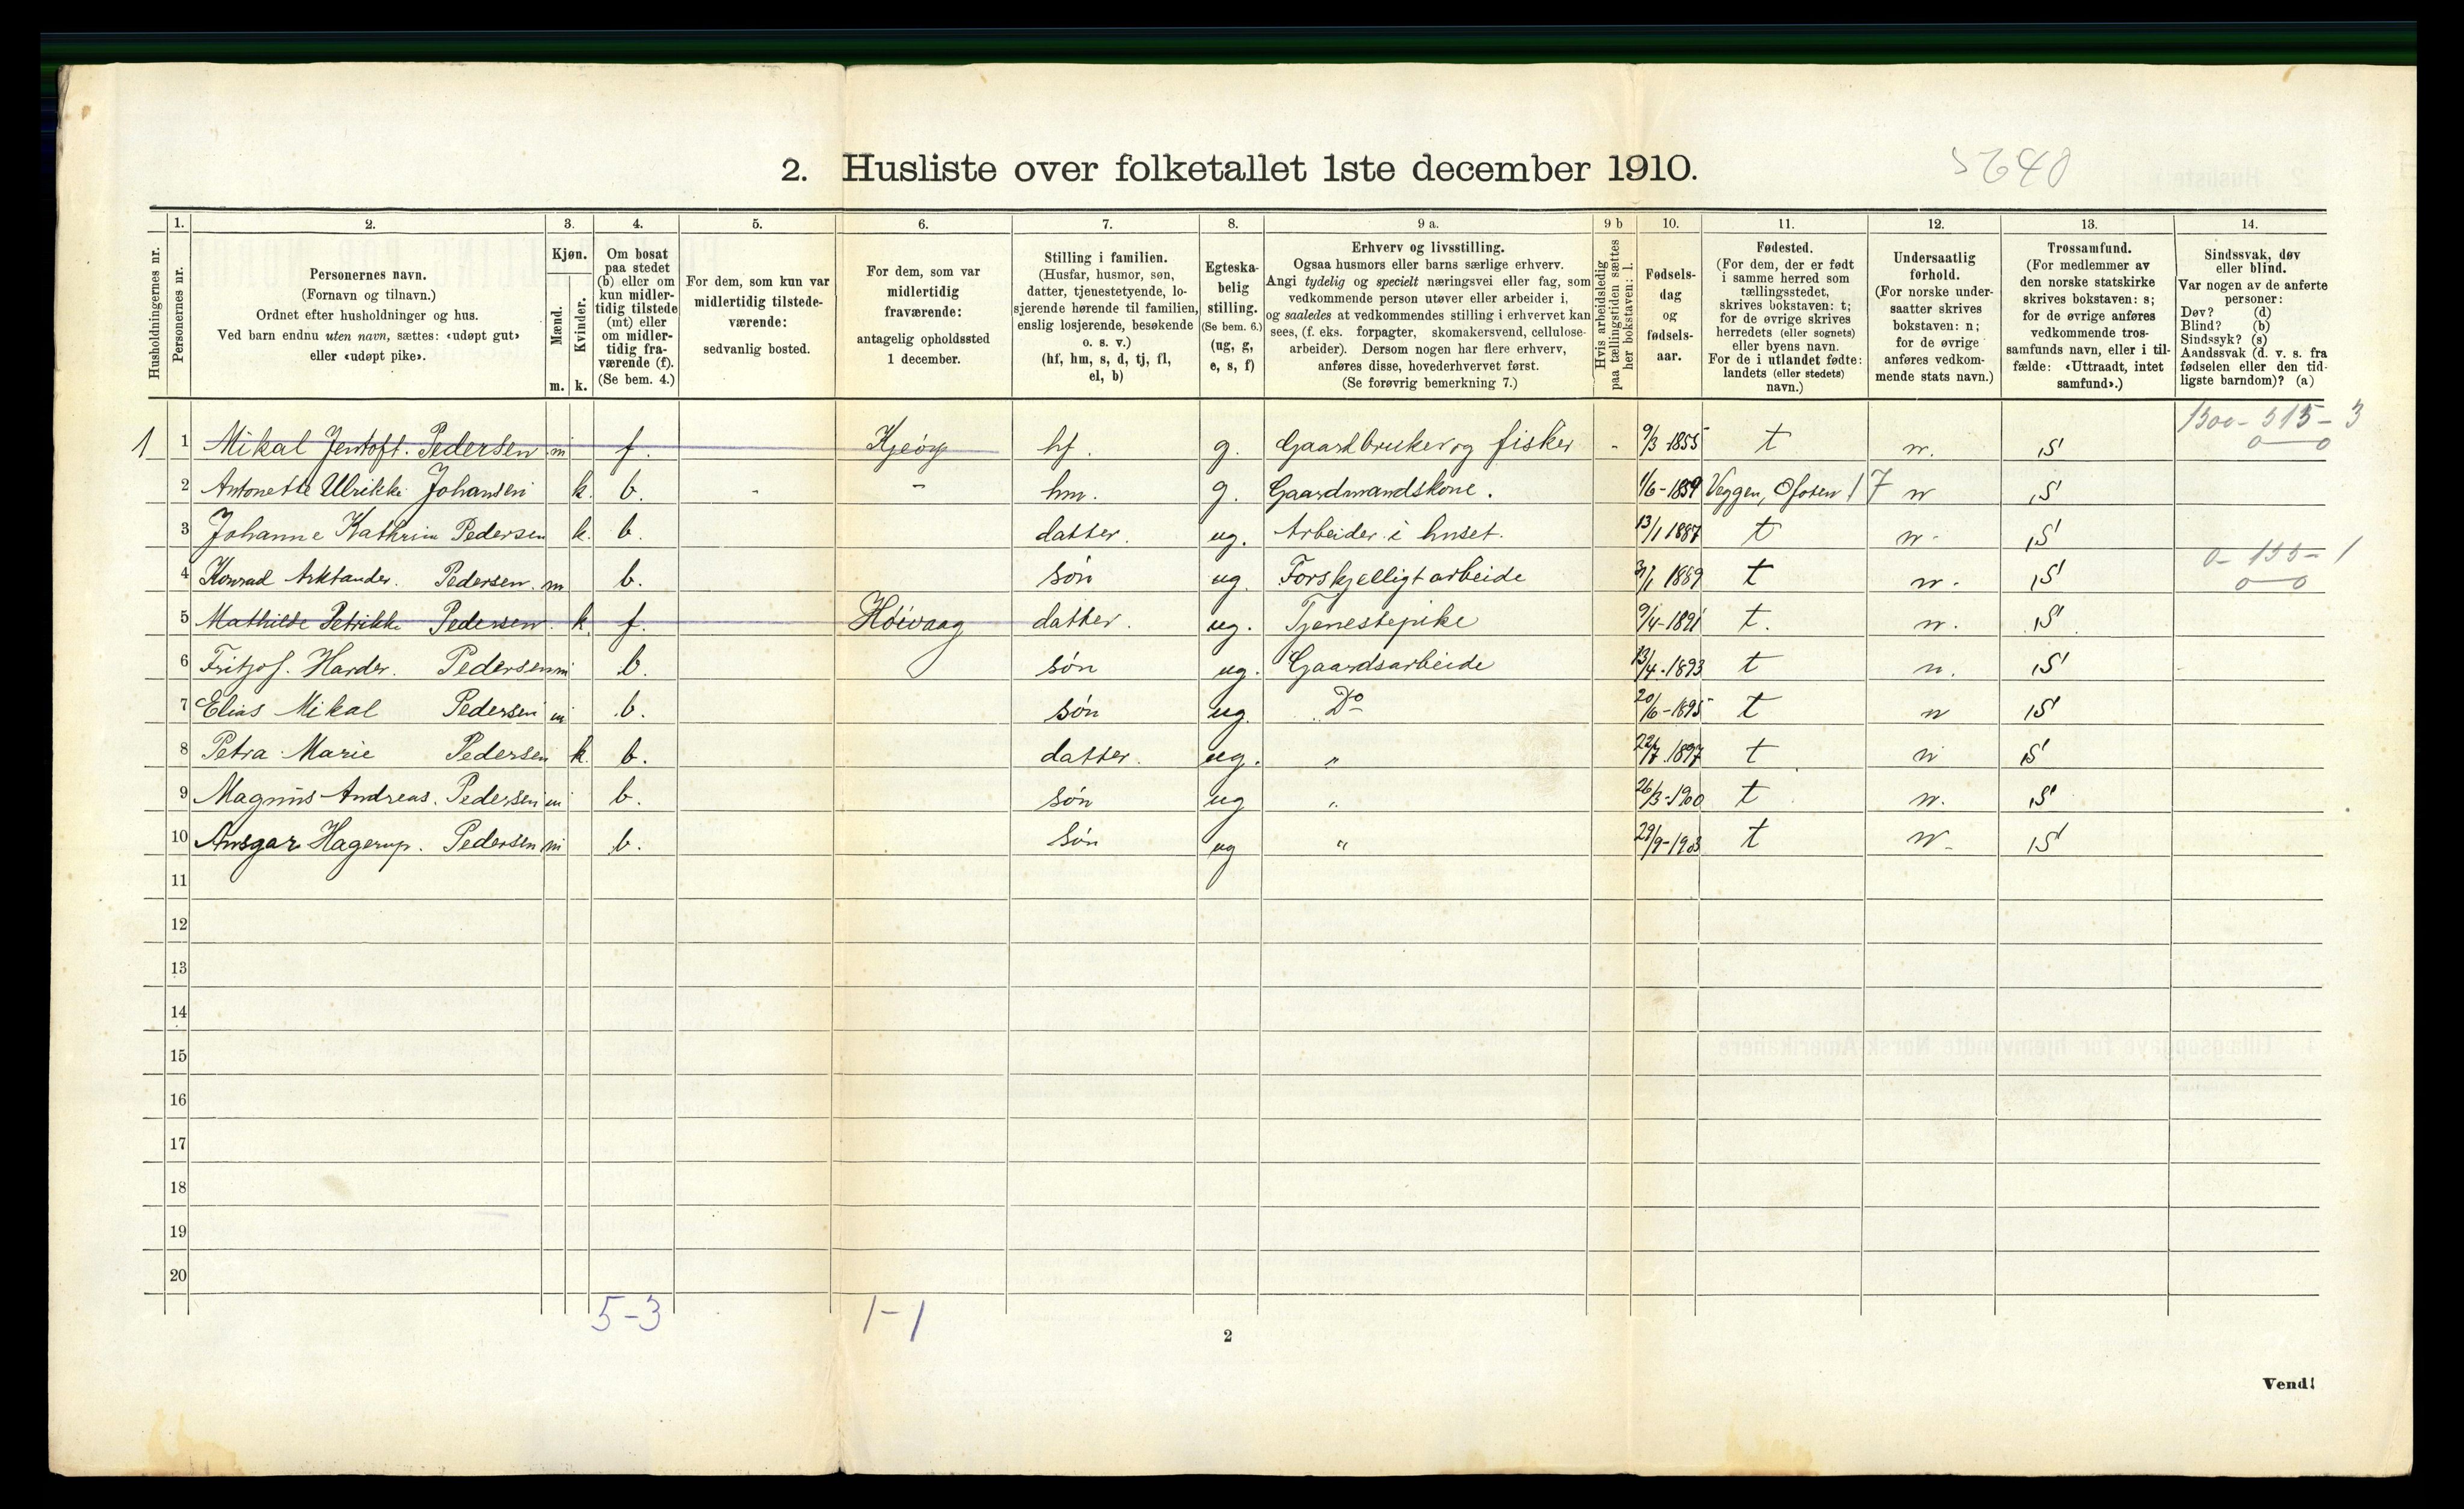 2. Husliste over folketallet 1ste december 1910.
5640
1. 2. 3. 4. 5. 6. 7. 8. 9 a. 9 b 10. 11. 12. 13. 14.
Husholdningernes nr.
Personernes nr.
Personernes navn.
(Fornavn og tilnavn.)
Ordnet efter husholdninger og hus.
Ved barn endnu uten navn, sættes: «udøpt gut»
eller «udøpt pike».
Kjøn.
Mænd.
Kvinder.
m. k.
Om bosat
paa stedet
(b) eller om
kun midler-
tidig tilstede
(mt) eller
om midler-
tidig fra-
værende (f).
(Se bem. 4.)
For dem, som kun var
midlertidig tilstede-
værende:
sedvanlig bosted.
For dem, som var
midlertidig
fraværende:
antagelig opholdssted
1 december.
Stilling i familien.
(Husfar, husmor, søn,
datter, tjenestetyende, lo-
sjerende hørende til familien,
enslig losjerende, besøkende
o. s. v.)
(hf, hm, s, d, tj, fl,
el, b)
Egteska-
belig
stilling.
(Se bem. 6.)
(ug, g,
e, s, f)
Erhverv og livsstilling.
Ogsaa husmors eller barns særlige erhverv.
Angi tydelig og specielt næringsvei eller fag, som
vedkommende person utøver eller arbeider i,
og saaledes at vedkommendes stilling i erhvervet kan
sees, (f. eks. forpagter, skomakersvend, cellulose-
arbeider). Dersom nogen har flere erhverv,
anføres disse, hovederhvervet først.
(Se forøvrig bemerkning 7.)
Hvis arbeidsledig
paa tællingstiden sættes
her bokstaven: l.
Fødsels-
dag
og
fødsels-
aar.
Fødested.
(For dem, der er født
i samme herred som
tællingsstedet,
skrives bokstaven: t;
for de øvrige skrives
herredets (eller sognets)
eller byens navn.
For de i utlandet fødte:
landets (eller stedets)
navn.)
Undersaatlig
forhold.
(For norske under-
saatter skrives
bokstaven: n;
for de øvrige
anføres vedkom-
mende stats navn.)
Trossamfund.
(For medlemmer av
den norske statskirke
skrives bokstaven: s;
for de øvrige anføres
vedkommende tros-
samfunds navn, eller i til-
fælde: «Uttraadt, intet
samfund».)
Sindssvak, døv
eller blind.
Var nogen av de anførte
personer:
Døv? (d)
Blind? (b)
Sindssyk? (s)
Aandssvak (d. v. s. fra
fødselen eller den tid-
ligste barndom)? (a)
1500-515-3
0—0
1 1 Mikal Jentoft. Pedersen m f. Kjeöy hf. g. Gaardbruker og fisker - 9/3-1855 t n. S
2 Antonette Ulrikke Johansen k. b. - - hm. g. Gaardmandskone. 1/6-1859 Veggen, Ofoten 17 n S
3 Johanne Kathrine Pedersen k. b. datter. ug. Arbeider i huset. 13/1 1887 t n- S
0-155-1
0—0
4 Konrad Arktander. Pedersen. m b. søn ug. Forskjelligt arbeide 31/1 1889 t n. S
5 Mathilde Petrikke Pedersen. k. f. Höivaag datter. ug. Tjenestepike 9/4-1891 t. n. S
6 Fritjof. Harder. Pedersen m b. søn ug. Gaardsarbeide 13/4-1893 t n. S
7 Elias Mikal Pedersen m b. søn ug. Do 20/6-1895 t n S
8 Petra Marie Pedersen k. b. datter. ug. " 22/7 1897 t n S
9 Magnus Andreas. Pedersen m b. søn ug " 26/3-1900 t n. S
10 Ansgar Hagerup. Pedersen m b. søn ug " 29/9-1903 t n- S
11
12
13
14
15
16
17
18
19
20
5-3 1-1
2
Vend!